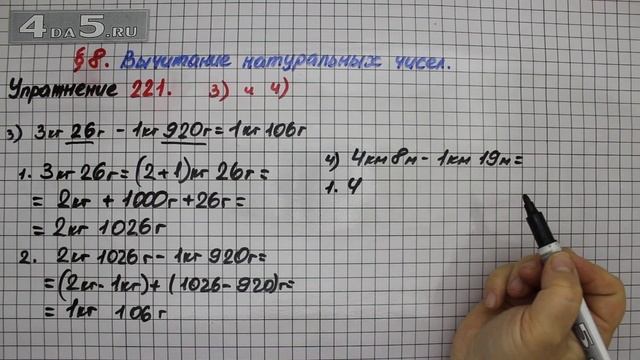 4DA5.RU
§8. Вычитание натуральных чисел.
Упражнение 221. 3) и 4)
3) 3кг 26г - 1кг 920г = 1кг 106г
1. 3кг 26г = (2+1)кг 26г =
= 2кг + 1000г + 26г =
= 2кг 1026г
2. 2кг 1026г - 1кг 920г =
= (2кг - 1кг) + (1026 - 920)г =
= 1кг 106г
4) 4км 8м - 1км 19м =
1. 4